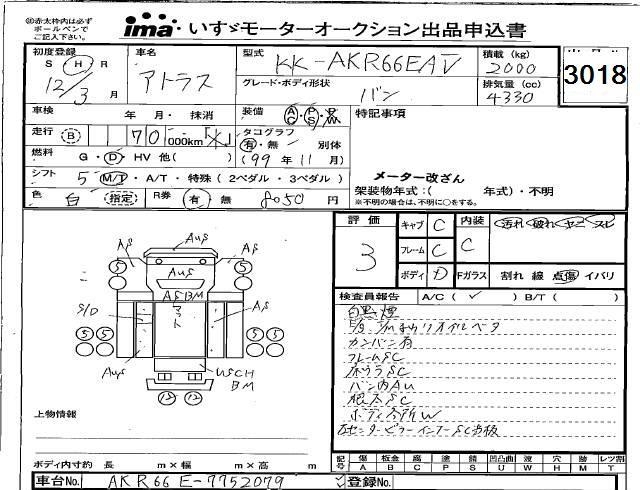 ㊟赤太枠内は必ず
ボールペンで
ご記入下さい。
ima いすゞモーターオークション出品申込書
初度登録
S H R
12/3 月
車名
アトラス
型式
KK-AKR66EAV
積載(kg)
2000
3018
グレード・ボディ形状
バン
排気量(cc)
4330
車検 年 月・ 抹消
装備
特記事項
走行
70 000km
タコグラフ
有・無 別体
(99 年 11 月)
燃料 G・D・HV 他( )
シフト 5 M/T・A/T・特殊(2ペダル・3ペダル)
メーター改ざん
架装物年式:( 年式)・不明
※不明の場合は、不明に○をする。
色 白 指定 R券 有 無 8050 円
評価
3
キャブ C
フレーム C
ボディ D
内装
C
汚れ 破れ ヤニ スレ
Fガラス 割れ 線 点傷 イバリ
検査員報告 A/C( ✓ ) B/T( )
カンバン有
フレームSC
床ウラSC
バン内AU
根太SC
ボディ各所W
上物情報
ボディ内寸約 長 m×幅 m×高 m
記号
傷 A
板金 B
腐 C
塗 P
錆 S
凹凸曲 U
波 W
穴 H
跡 M
レツ割 T
車台No. AKR66E-7752079
登録No.